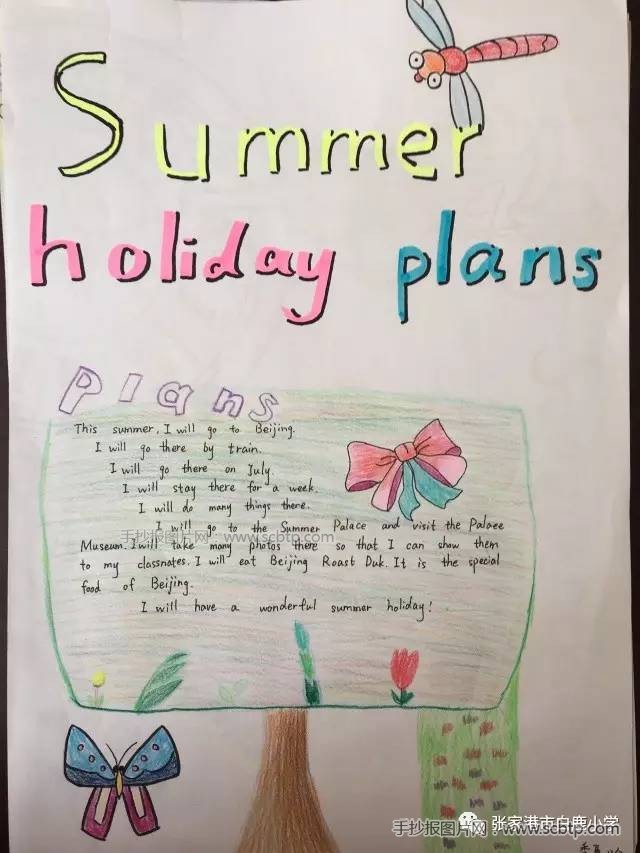 Summer
holiday plans
plans
This summer, I will go to Beijing.
I will go there by train.
I will go there on July.
I will stay there for a week.
I will do many things there.
I will go to the Summer Palace and visit the Palace
Museum. I will take many photos there so that I can show them
手抄报图片网：www.scbtp.com
to my classnates. I will eat Beijing Roast Duk. It is the special
food of Beijing.
I will have a wonderful summer holiday!
张家港市白鹿小学
手抄报图片网：www.scbtp.com